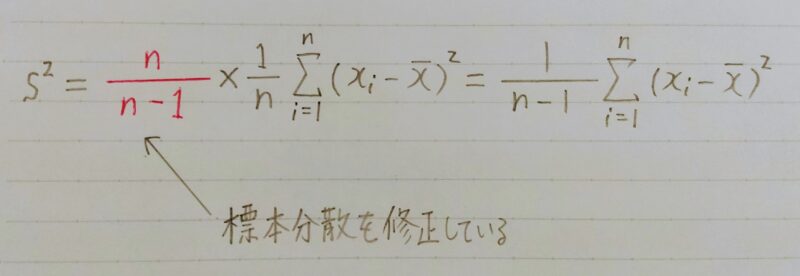 S² = n/(n-1) × 1/n Σ_{i=1}^{n} (xᵢ - x̄)² = 1/(n-1) Σ_{i=1}^{n} (xᵢ - x̄)²
標本分散を修正している